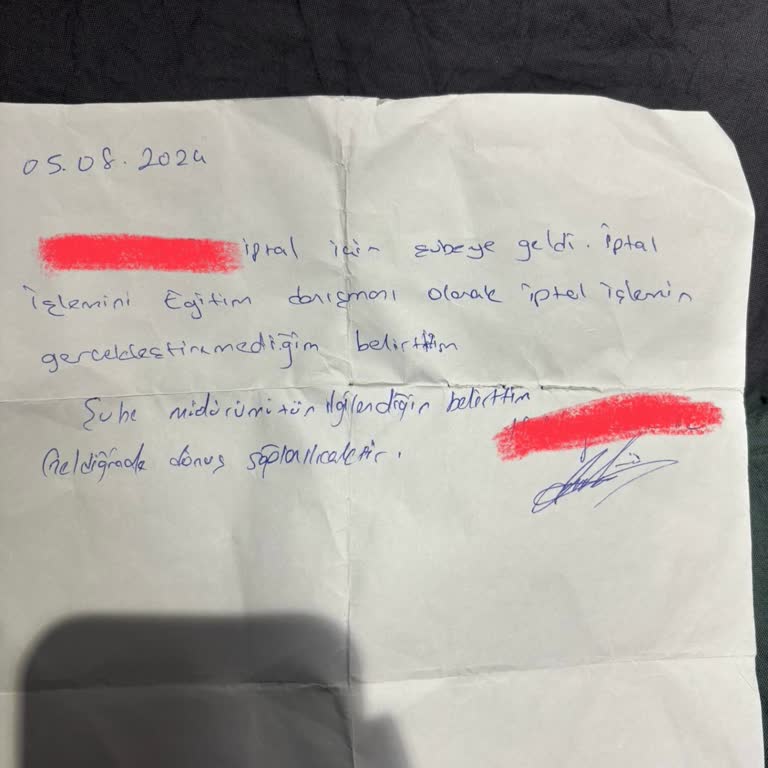 05.08.2024
iptal için şubeye geldi. İptal
İşlemini Eğitim danışmanı olarak iptal işlemin
gerçekleştirmediğim belirttim
Şube müdürümüzün ilgilendiğin belirttim
Geldiğinde dönüş sağlanılacaktır.